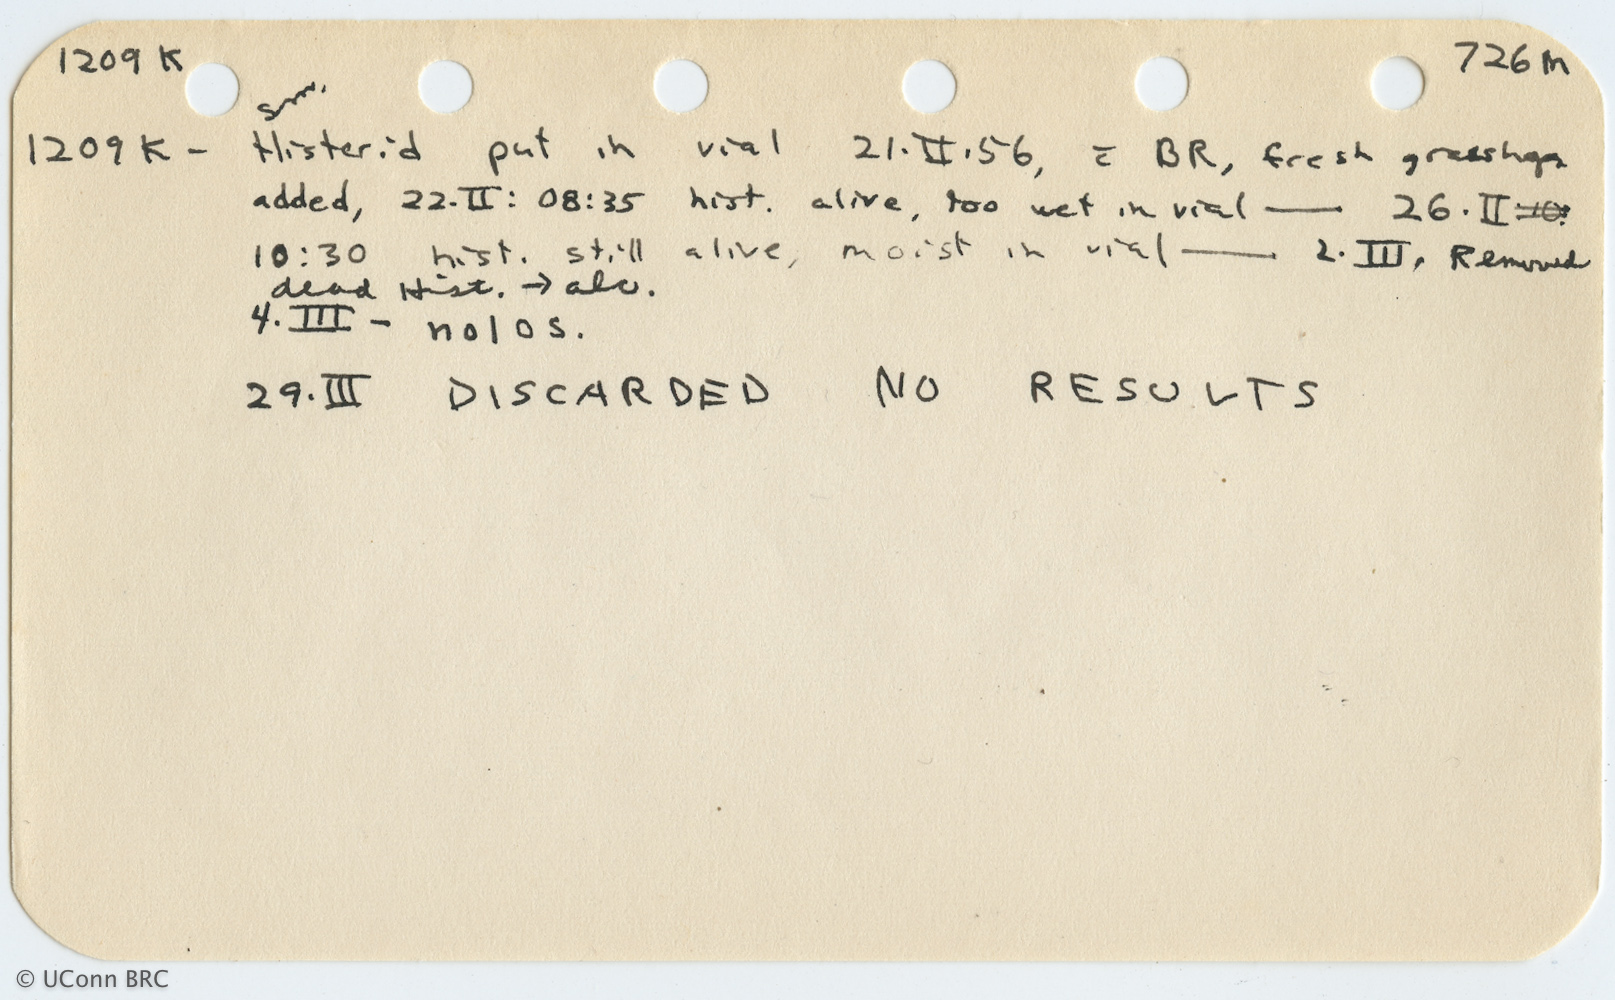 1209 K
726 M
sm.
1209 K - Histerid put in vial 21.II.56, c̄ BR, fresh grasshopper
added, 22.II: 08:35 hist. alive, too wet in vial — 26.II
10:30 hist. still alive, moist in vial — 2.III, Removed
dead Hist. → alc.
4.III - no los.
29.III DISCARDED NO RESULTS
© UConn BRC